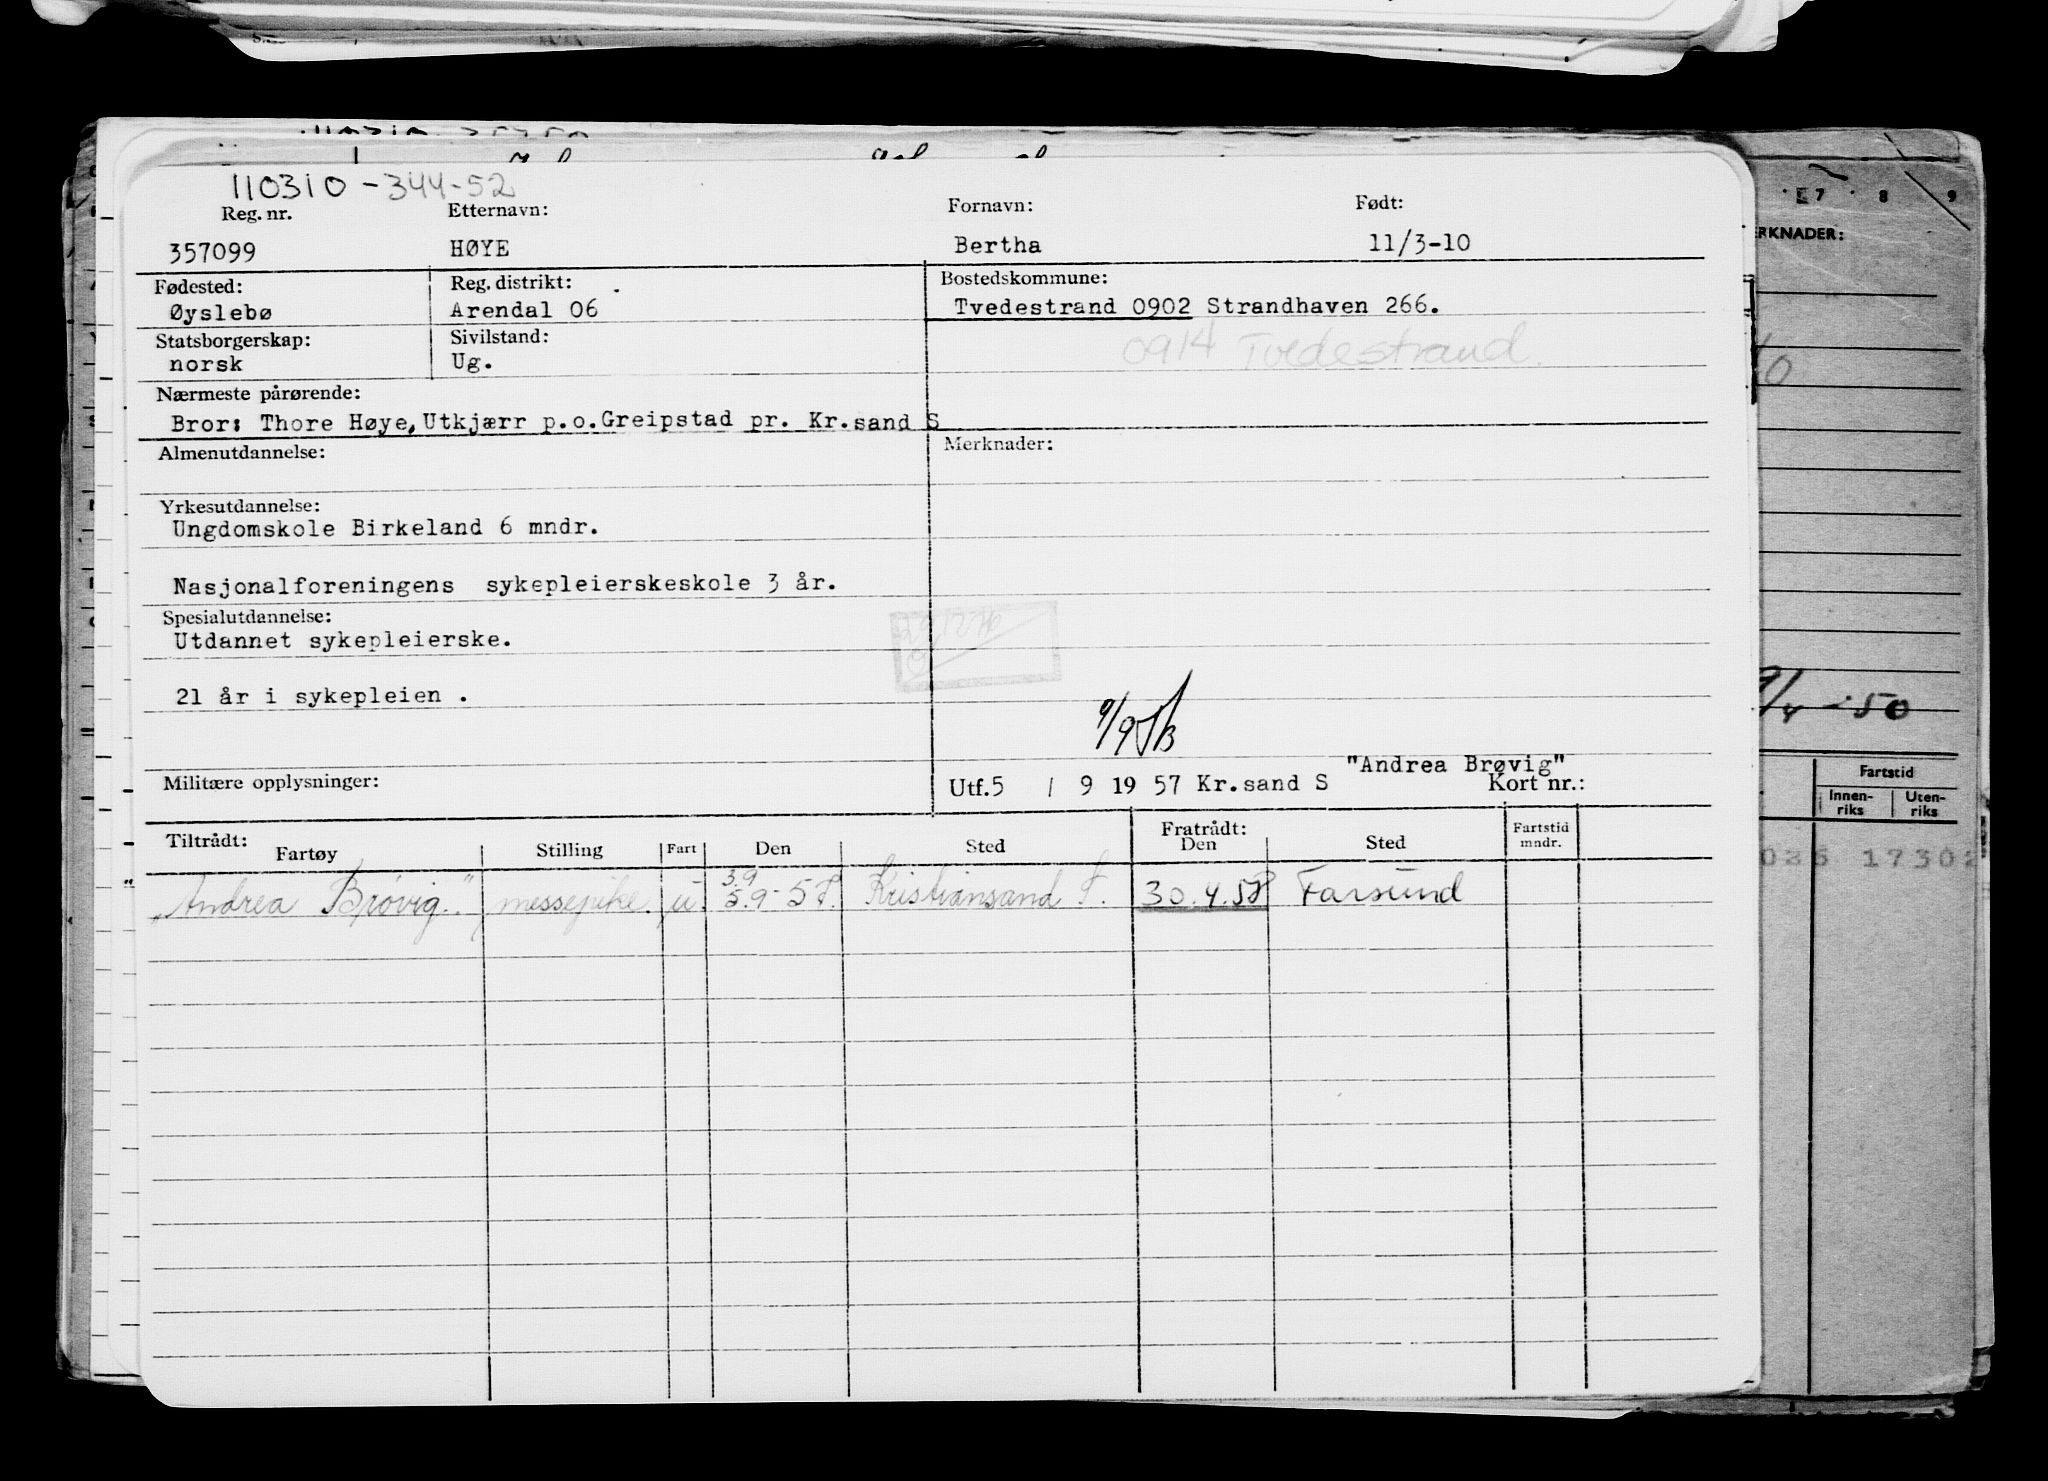 110310-344-52
Reg. nr. Etternavn: Fornavn: Født:
357099 HØYE Bertha 11/3-10
Fødested: Reg. distrikt: Bostedskommune:
Øyslebø Arendal 06 Tvedestrand 0902 Strandhaven 266.
Statsborgerskap: Sivilstand: 0914 Tvedestrand.
norsk Ug.
Nærmeste pårørende:
Bror: Thore Høye, Utkjærr p.o.Greipstad pr. Kr.sand S
Almenutdannelse: Merknader:
Yrkesutdannelse:
Ungdomskole Birkeland 6 mndr.
Nasjonalforeningens sykepleierskeskole 3 år.
Spesialutdannelse:
Utdannet sykepleierske.
21 år i sykepleien .
9/9
"Andrea Brøvig"
Militære opplysninger: Utf.5 / 9 19 57 Kr.sand S Kort nr.:
Tiltrådt: Fratrådt: Fartstid
Fartøy Stilling Fart Den Sted Den Sted mndr.
3.9
"Andrea Brøvig." messepike. u. 5.9-57. Kristiansand S. 30.4.58 Farsund
7 8 9
ERKNADER:
9/4 -50
Fartstid
Innen-riks Uten-riks
17302